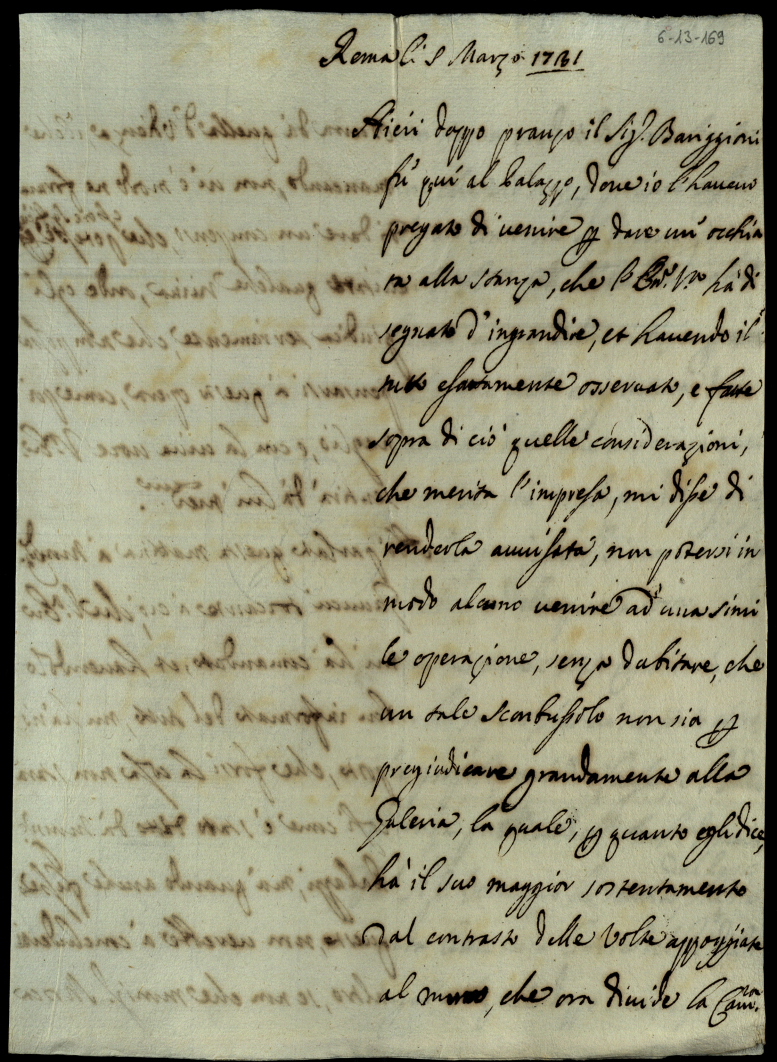 6-13-169
Roma li 8 Marzo 1731
Hieri doppo pranzo il Sig.r Barigioni
fù quì al Palazzo, dove io l'havevo
pregato di venire p dare un' occhia
ta alla stanza, che l' V.ra hà di
segnato d'ingrandire, et havendo il
tutto esattamente osservato, e fatte
sopra di ciò quelle considerazioni,
che merita l'impresa, mi disse di
renderla avvisata, non potersi in
modo alcuno venire ad una simi
le operazione, senza dubitare, che
un tale sconbussolo non sia p
pregiudicare grandamente alla
Galeria, la quale, p quanto egli dice,
hà il suo maggior sostentamento
dal contrasto delle Volte appoggiate
al muro, che ora divide la